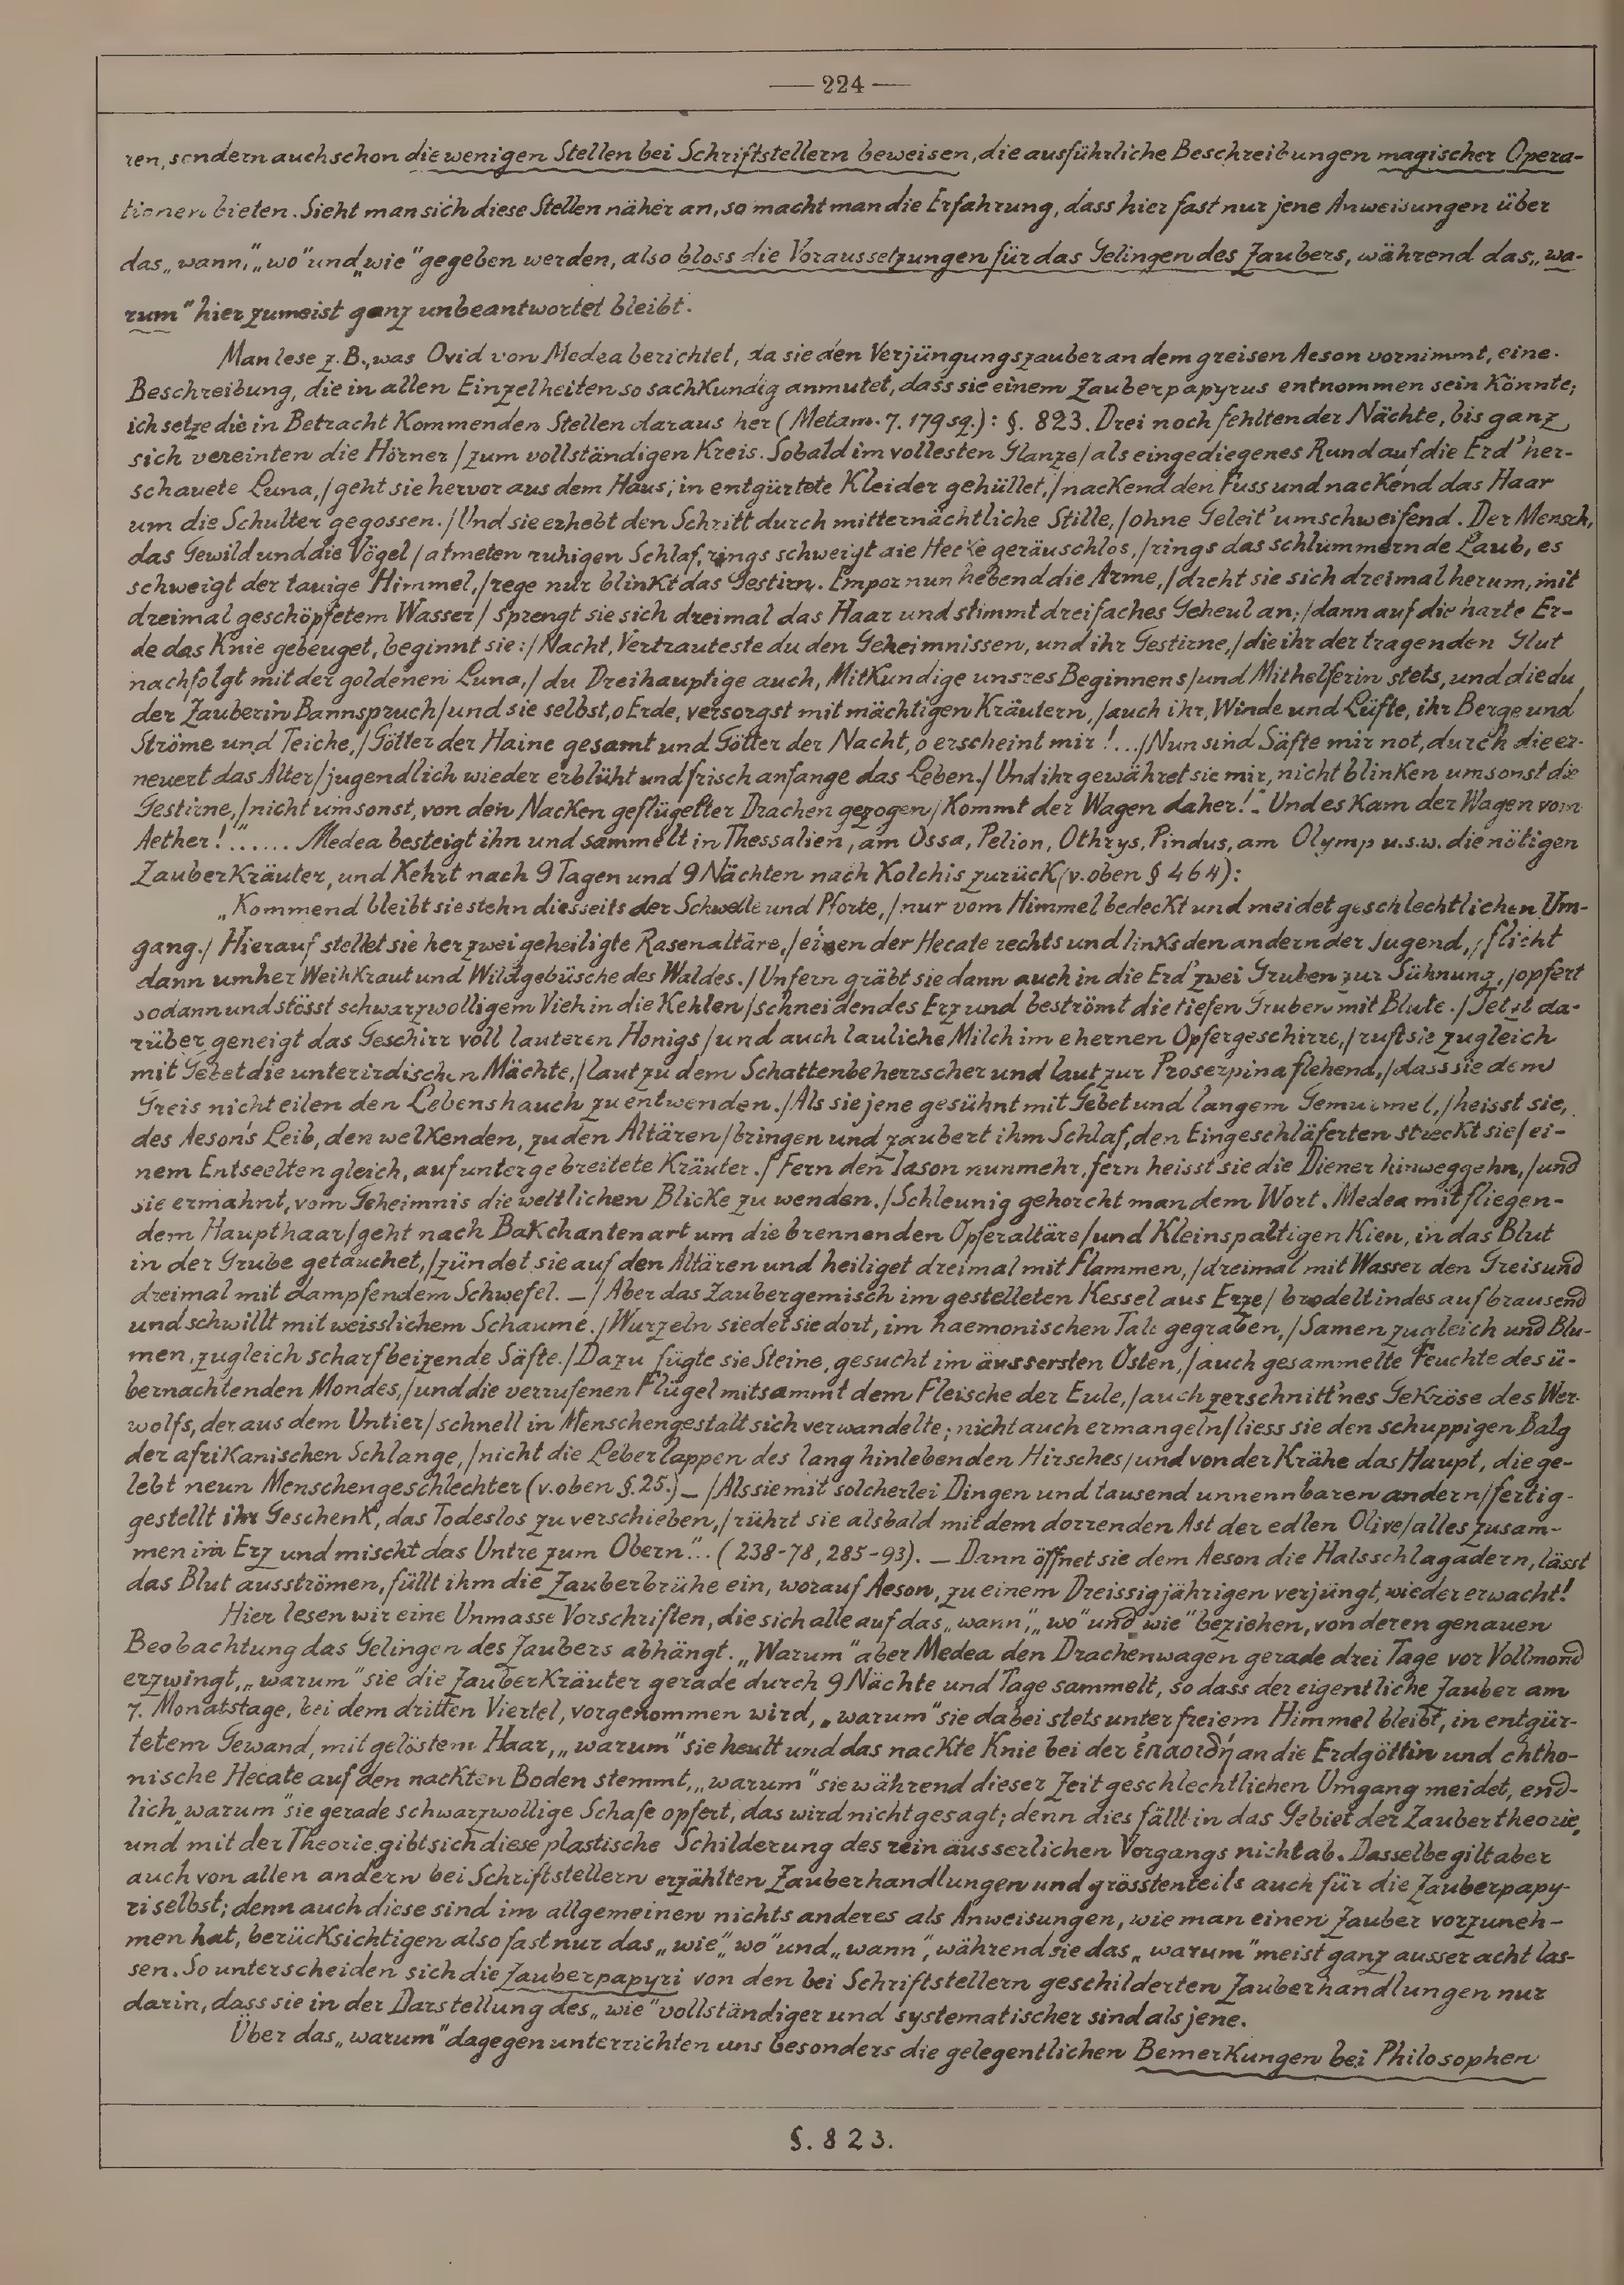 — 224 —
ren, sondern auch schon die wenigen Stellen bei Schriftstellern beweisen, die ausführliche Beschreibungen magischer Opera-
tionen bieten. Sieht man sich diese Stellen näher an, so macht man die Erfahrung, dass hier fast nur jene Anweisungen über
das „wann", „wo" und „wie" gegeben werden, also bloss die Voraussetzungen für das Gelingen des Zaubers, während das „wa-
rum" hier zumeist ganz unbeantwortet bleibt.
Man lese z.B., was Ovid von Medea berichtet, da sie den Verjüngungszauber an dem greisen Aeson vornimmt, eine
Beschreibung, die in allen Einzelheiten so sachkundig anmutet, dass sie einem Zauberpapyrus entnommen sein könnte;
ich setze die in Betracht kommenden Stellen daraus her (Metam. 7. 179 sq.): §. 823. Drei noch fehlten der Nächte, bis ganz
sich vereinten die Hörner / zum vollständigen Kreis. Sobald im vollesten Glanze / als eingediegenes Rund auf die Erd' her-
schauete Luna, / geht sie hervor aus dem Haus; in entgürtete Kleider gehüllet, / nackend den Fuss und nackend das Haar
um die Schulter gegossen. / Und sie erhebt den Schritt durch mitternächtliche Stille, / ohne Geleit' umschweifend. Der Mensch,
das Gewild und die Vögel / atmeten ruhigen Schlaf, rings schweigt die Hecke geräuschlos, / rings das schlummernde Laub, es
schweigt der tauige Himmel, / rege nur blinkt das Gestirn. Empor nun hebend die Arme, / dreht sie sich dreimal herum, mit
dreimal geschöpfetem Wasser / sprengt sie sich dreimal das Haar und stimmt dreifaches Geheul an; / dann auf die harte Er-
de das Knie gebeuget, beginnt sie: / Nacht, Vertrauteste du den Geheimnissen, und ihr Gestirne, / die ihr der tragenden Glut
nachfolgt mit der goldenen Luna, / du Dreihauptige auch, Mitkundige unsres Beginnens / und Mithelferin stets, und die du
der Zauberin Bannspruch / und sie selbst, o Erde, versorgst mit mächtigen Kräutern, / auch ihr, Winde und Lüfte, ihr Berge und
Ströme und Teiche, / Götter der Haine gesamt und Götter der Nacht, o erscheint mir! ... / Nun sind Säfte mir not, durch die er-
neuert das Alter / jugendlich wieder erblüht und frisch anfange das Leben. / Und ihr gewähret sie mir, nicht blinken umsonst die
Gestirne, / nicht umsonst, von den Nacken geflügelter Drachen gezogen / Kommt der Wagen daher!" Und es kam der Wagen vom
Aether!" ...... Medea besteigt ihn und sammelt in Thessalien, am Ossa, Pelion, Othrys, Pindus, am Olymp u.s.w. die nötigen
Zauberkräuter, und kehrt nach 9 Tagen und 9 Nächten nach Kolchis zurück (v. oben § 464):
„Kommend bleibt sie stehn diesseits der Schwelle und Pforte, / nur vom Himmel bedeckt und meidet geschlechtlichen Um-
gang. / Hierauf stellet sie her zwei geheiligte Rasenaltäre, / einen der Hecate rechts und links den andern der Jugend, / flicht
dann umher Weihkraut und Wildgebüsche des Waldes. / Unfern gräbt sie dann auch in die Erd' zwei Gruben zur Sühnung, / opfert
sodann und stösst schwarzwolligem Vieh in die Kehlen / schneidendes Erz und beströmt die tiefen Gruben mit Blute. / Jetzt da-
rüber geneigt das Geschirr voll lauteren Honigs / und auch lauliche Milch im ehernen Opfergeschirre, / ruft sie zugleich
mit Gebet die unterirdischen Mächte, / laut zu dem Schattenbeherrscher und laut zur Proserpina flehend, / dass sie dem
Greis nicht eilen den Lebenshauch zu entwenden. / Als sie jene gesühnt mit Gebet und langem Gemurmel, / heisst sie,
des Aeson's Leib, den welkenden, zu den Altären / bringen und zaubert ihm Schlaf, den Eingeschläferten streckt sie / ei-
nem Entseelten gleich, auf untergebreitete Kräuter. / Fern den Iason nunmehr, fern heisst sie die Diener hinweggehn, / und
sie ermahnt, vom Geheimnis die weltlichen Blicke zu wenden. / Schleunig gehorcht man dem Wort. Medea mit fliegen-
dem Haupthaar / geht nach Bakchantenart um die brennenden Opferaltäre / und kleinspaltigen Kien, in das Blut
in der Grube getauchet, / zündet sie auf den Altären und heiliget dreimal mit Flammen, / dreimal mit Wasser den Greis und
dreimal mit dampfendem Schwefel. — / Aber das Zaubergemisch im gestelleten Kessel aus Erze / brodelt indes aufbrausend
und schwillt mit weisslichem Schaume. / Wurzeln siedet sie dort, im haemonischen Tale gegraben, / Samen zugleich und Blu-
men, zugleich scharfbeizende Säfte. / Dazu fügte sie Steine, gesucht im äussersten Osten, / auch gesammelte Feuchte des ü-
bernachtenden Mondes, / und die verrufenen Flügel mitsammt dem Fleische der Eule, / auch zerschnitt'nes Gekröse des Wer-
wolfs, der aus dem Untier / schnell in Menschengestalt sich verwandelte; nicht auch ermangeln / liess sie den schuppigen Balg
der afrikanischen Schlange, / nicht die Leberlappen des lang hinlebenden Hirsches / und von der Krähe das Haupt, die ge-
lebt neun Menschengeschlechter (v. oben §. 25.) — / Als sie mit solcherlei Dingen und tausend unnennbaren andern / fertig-
gestellt ihr Geschenk, das Todeslos zu verschieben, / rührt sie alsbald mit dem dorrenden Ast der edlen Olive / alles zusam-
men im Erz und mischt das Untre zum Obern"... (238-78, 285-93). — Dann öffnet sie dem Aeson die Halsschlagadern, lässt
das Blut ausströmen, füllt ihm die Zauberbrühe ein, worauf Aeson, zu einem Dreissigjährigen verjüngt, wieder erwacht!
Hier lesen wir eine Unmasse Vorschriften, die sich alle auf das „wann", „wo" und „wie" beziehen, von deren genauen
Beobachtung das Gelingen des Zaubers abhängt. „Warum" aber Medea den Drachenwagen gerade drei Tage vor Vollmond
erzwingt, „warum" sie die Zauberkräuter gerade durch 9 Nächte und Tage sammelt, so dass der eigentliche Zauber am
7. Monatstage, bei dem dritten Viertel, vorgenommen wird, „warum" sie dabei stets unter freiem Himmel bleibt, in entgür-
tetem Gewand, mit gelöstem Haar, „warum" sie heult und das nackte Knie bei der ἐπαοιδή an die Erdgöttin und chtho-
nische Hecate auf den nackten Boden stemmt, „warum" sie während dieser Zeit geschlechtlichen Umgang meidet, end-
lich „warum" sie gerade schwarzwollige Schafe opfert, das wird nicht gesagt; denn dies fällt in das Gebiet der Zaubertheorie,
und mit der Theorie gibt sich diese plastische Schilderung des rein äusserlichen Vorgangs nicht ab. Dasselbe gilt aber
auch von allen andern bei Schriftstellern erzählten Zauberhandlungen und grösstenteils auch für die Zauberpapy-
ri selbst; denn auch diese sind im allgemeinen nichts anderes als Anweisungen, wie man einen Zauber vorzuneh-
men hat, berücksichtigen also fast nur das „wie", „wo" und „wann", während sie das „warum" meist ganz ausser acht las-
sen. So unterscheiden sich die Zauberpapyri von den bei Schriftstellern geschilderten Zauberhandlungen nur
darin, dass sie in der Darstellung des „wie" vollständiger und systematischer sind als jene.
Über das „warum" dagegen unterrichten uns besonders die gelegentlichen Bemerkungen bei Philosophen
§. 823.